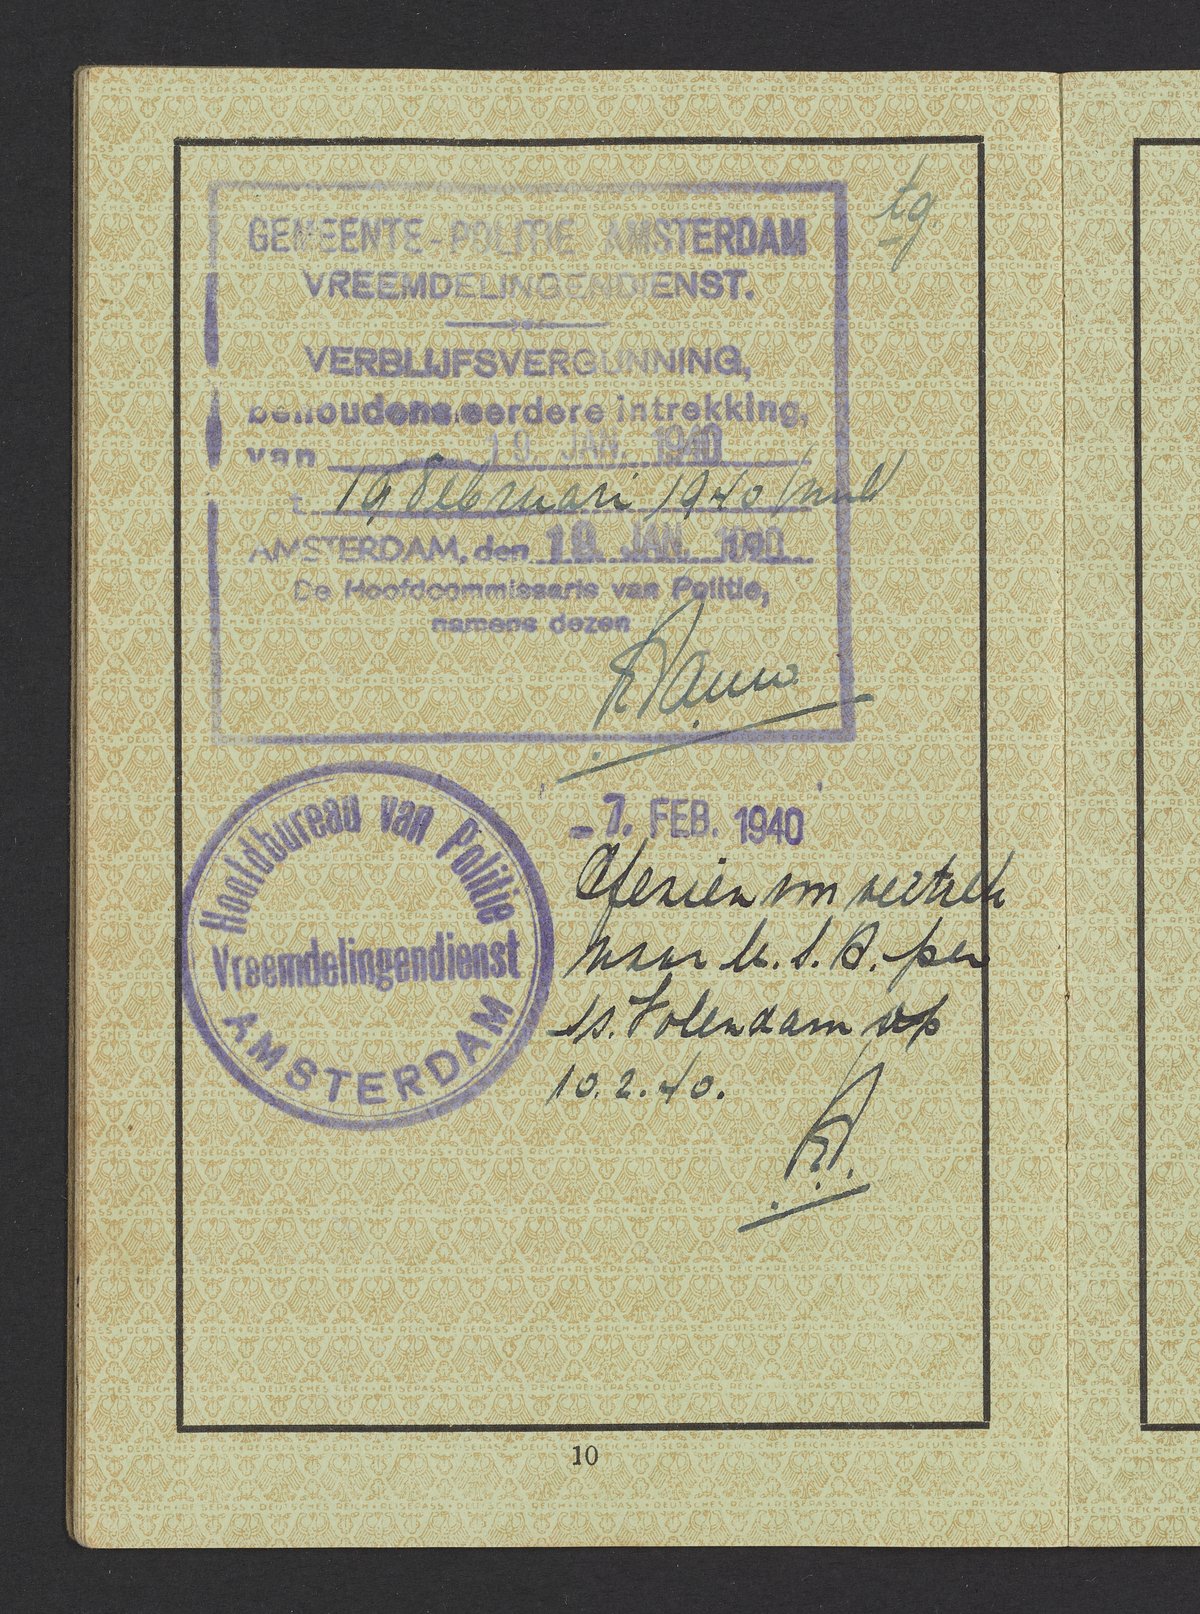 tg.
GEMEENTE-POLITIE AMSTERDAM
VREEMDELINGENDIENST.
VERBLIJFSVERGUNNING,
behoudens eerdere intrekking,
van 19. JAN. 1940
t. 19 Februari 1940
AMSTERDAM, den 19. JAN. 1940
De Hoofdcommissaris van Politie,
namens dezen
Hoofdbureau van Politie
Vreemdelingendienst
AMSTERDAM
-7. FEB. 1940
Afezien om vertrek
naar U.S.A. per
ss. Volendam op
10.2.40.
10